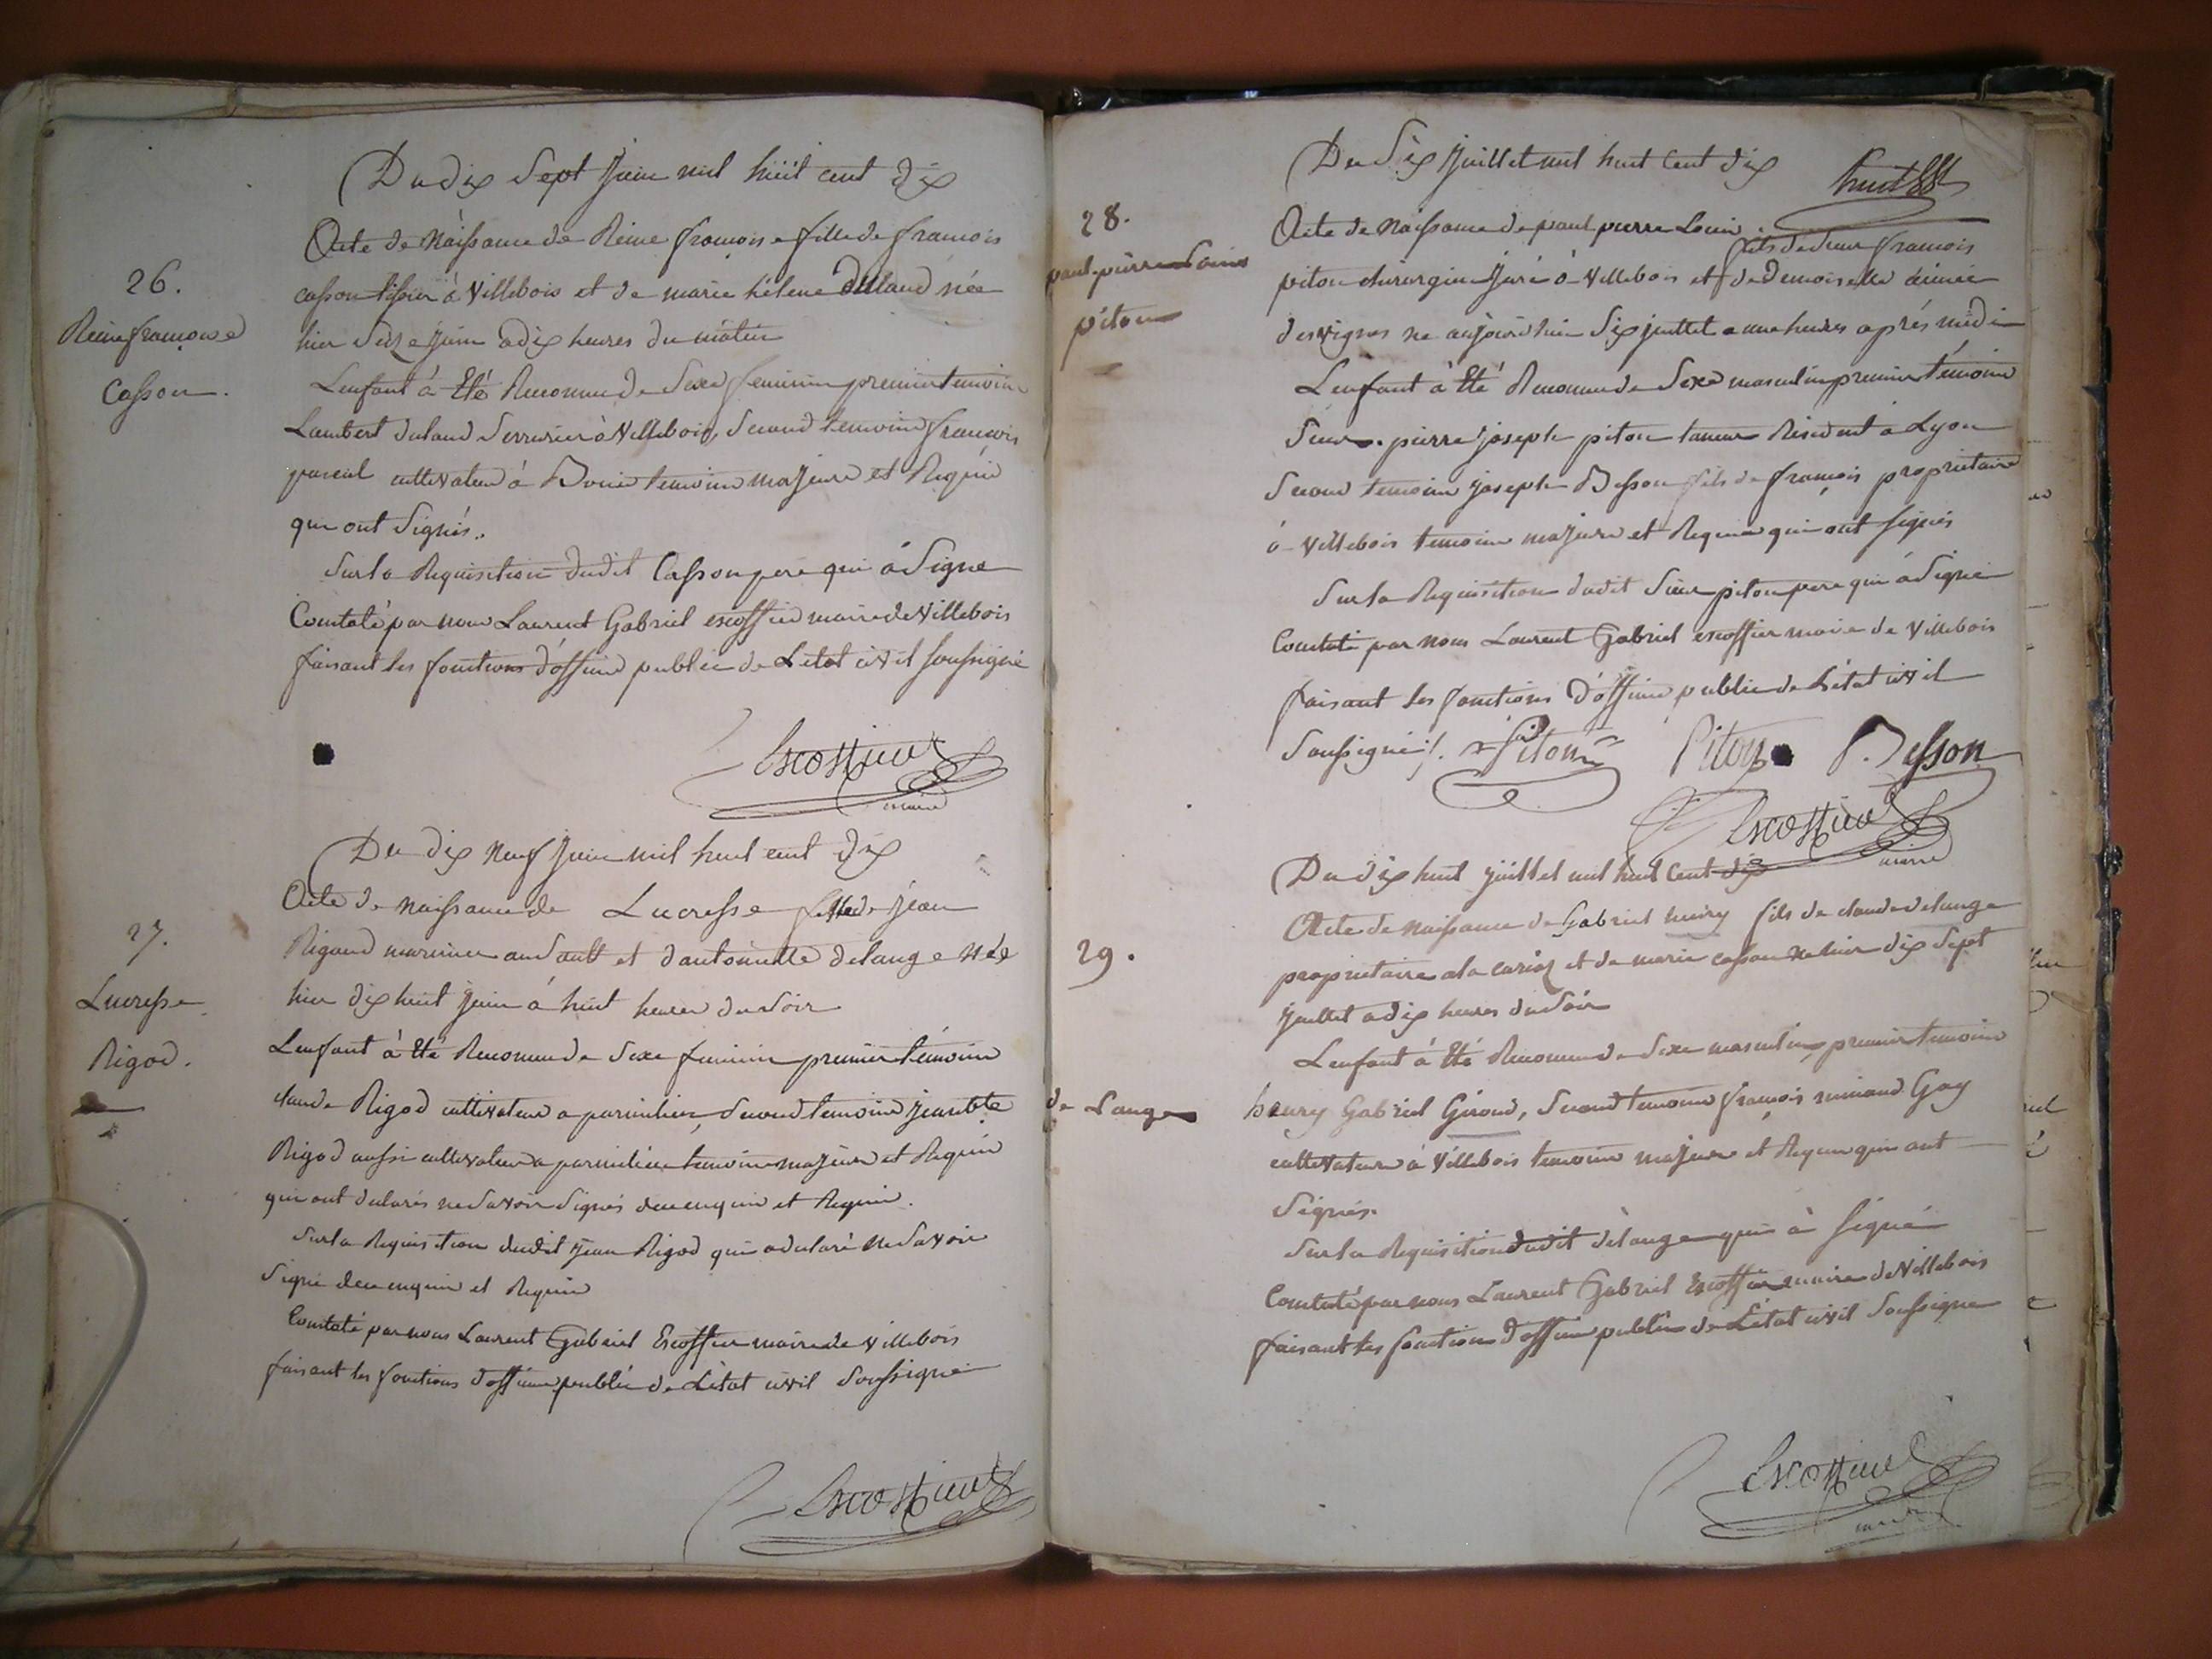 Du dix Sept Juin mil huit cent dix
26.
Reine françoise
Casson.
Acte de Naissance de Reine françoise fille de francois
casson tissier à Villebois et de marie hélene Dulaud née
hier Seize Juin a dix heures du matin
Lenfant à Eté Reconnu de Sexe feminin premier temoin
Lambert dulaud Serrurier à Villebois, Second temoin francois
pascal cultivateur à Bouis temoins majeurs et Requis
qui ont Signés.
Sur la Requisition dudit Casson pere qui à Signe
Constaté par nous Laurent Gabriel escoffier maire de Villebois
faisant les fonctions d'officier public de Létat civil soussigné
Escoffier
maire
Du dix Neuf Juin mil huit cent dix
27.
Lucresse
Rigod.
Acte de Naissance de Lucresse fille de jean
Rigaud marinier au Sault et d'antoinette delange née
hier dix huit Juin à huit heures du Soir
Lenfant à Eté Reconnu de Sexe feminin premier témoin
claude Rigod cultivateur a parmilieu, Second temoin jean bte
Rigod aussi cultivateur a parmilieu temoins majeurs et Requis
qui ont declarés ne Savoir Signés de ce enquis et Requis.
Sur la Requisition dudit Jean Rigod qui a declaré ne Savoir
Signé de ce enquis et Requis
Constaté par nous Laurent Gabriel Escoffier maire de villebois
faisant les fonctions d'officier public de Létat civil Soussigné
Escoffier
Du Six Juillet mil huit Cent dix
28.
paul pierre Louis
piton
Acte de Naissance de paul pierre Louis
fils de Sieur francois
piton chirurgien Juré à Villebois et de Demoiselle aimée
desvignes né aujourd'hui Six juillet a une heures après midi
Lenfant à Eté Reconnu de Sexe masculin premier témoin
Sieur pierre joseph piton tanneur Résident à Lyon
Second temoin joseph Besson fils de françois proprietaire
à Villebois temoins majeurs et Requis qui ont signés
Sur la Requisition dudit Sieur piton pere qui à Signé
Constaté par nous Laurent Gabriel escoffier maire de Villebois
faisant les fonctions d'officier public de Létat civil
Soussigné /. Piton Piton Besson
Escoffier
maire
Du dix huit juillet mil huit Cent dix
29.
de Lange
Acte de naissance de Gabriel henry fils de claude delange
proprietaire a la cariaz et de marie casson né hier dix Sept
juillet a dix heures du Soir
Lenfant à Eté Reconnu de Sexe masculin, premier temoin
henry Gabriel Giroud, Second temoin françois Gay
cultivateur à Villebois temoins majeurs et Requis qui ont
Signés.
Sur la Requisition dudit delange qui à signé
Constaté par nous Laurent Gabriel Escoffier maire de Villebois
faisant les fonction d'officier public de Létat civil Soussigné
Escoffier
maire